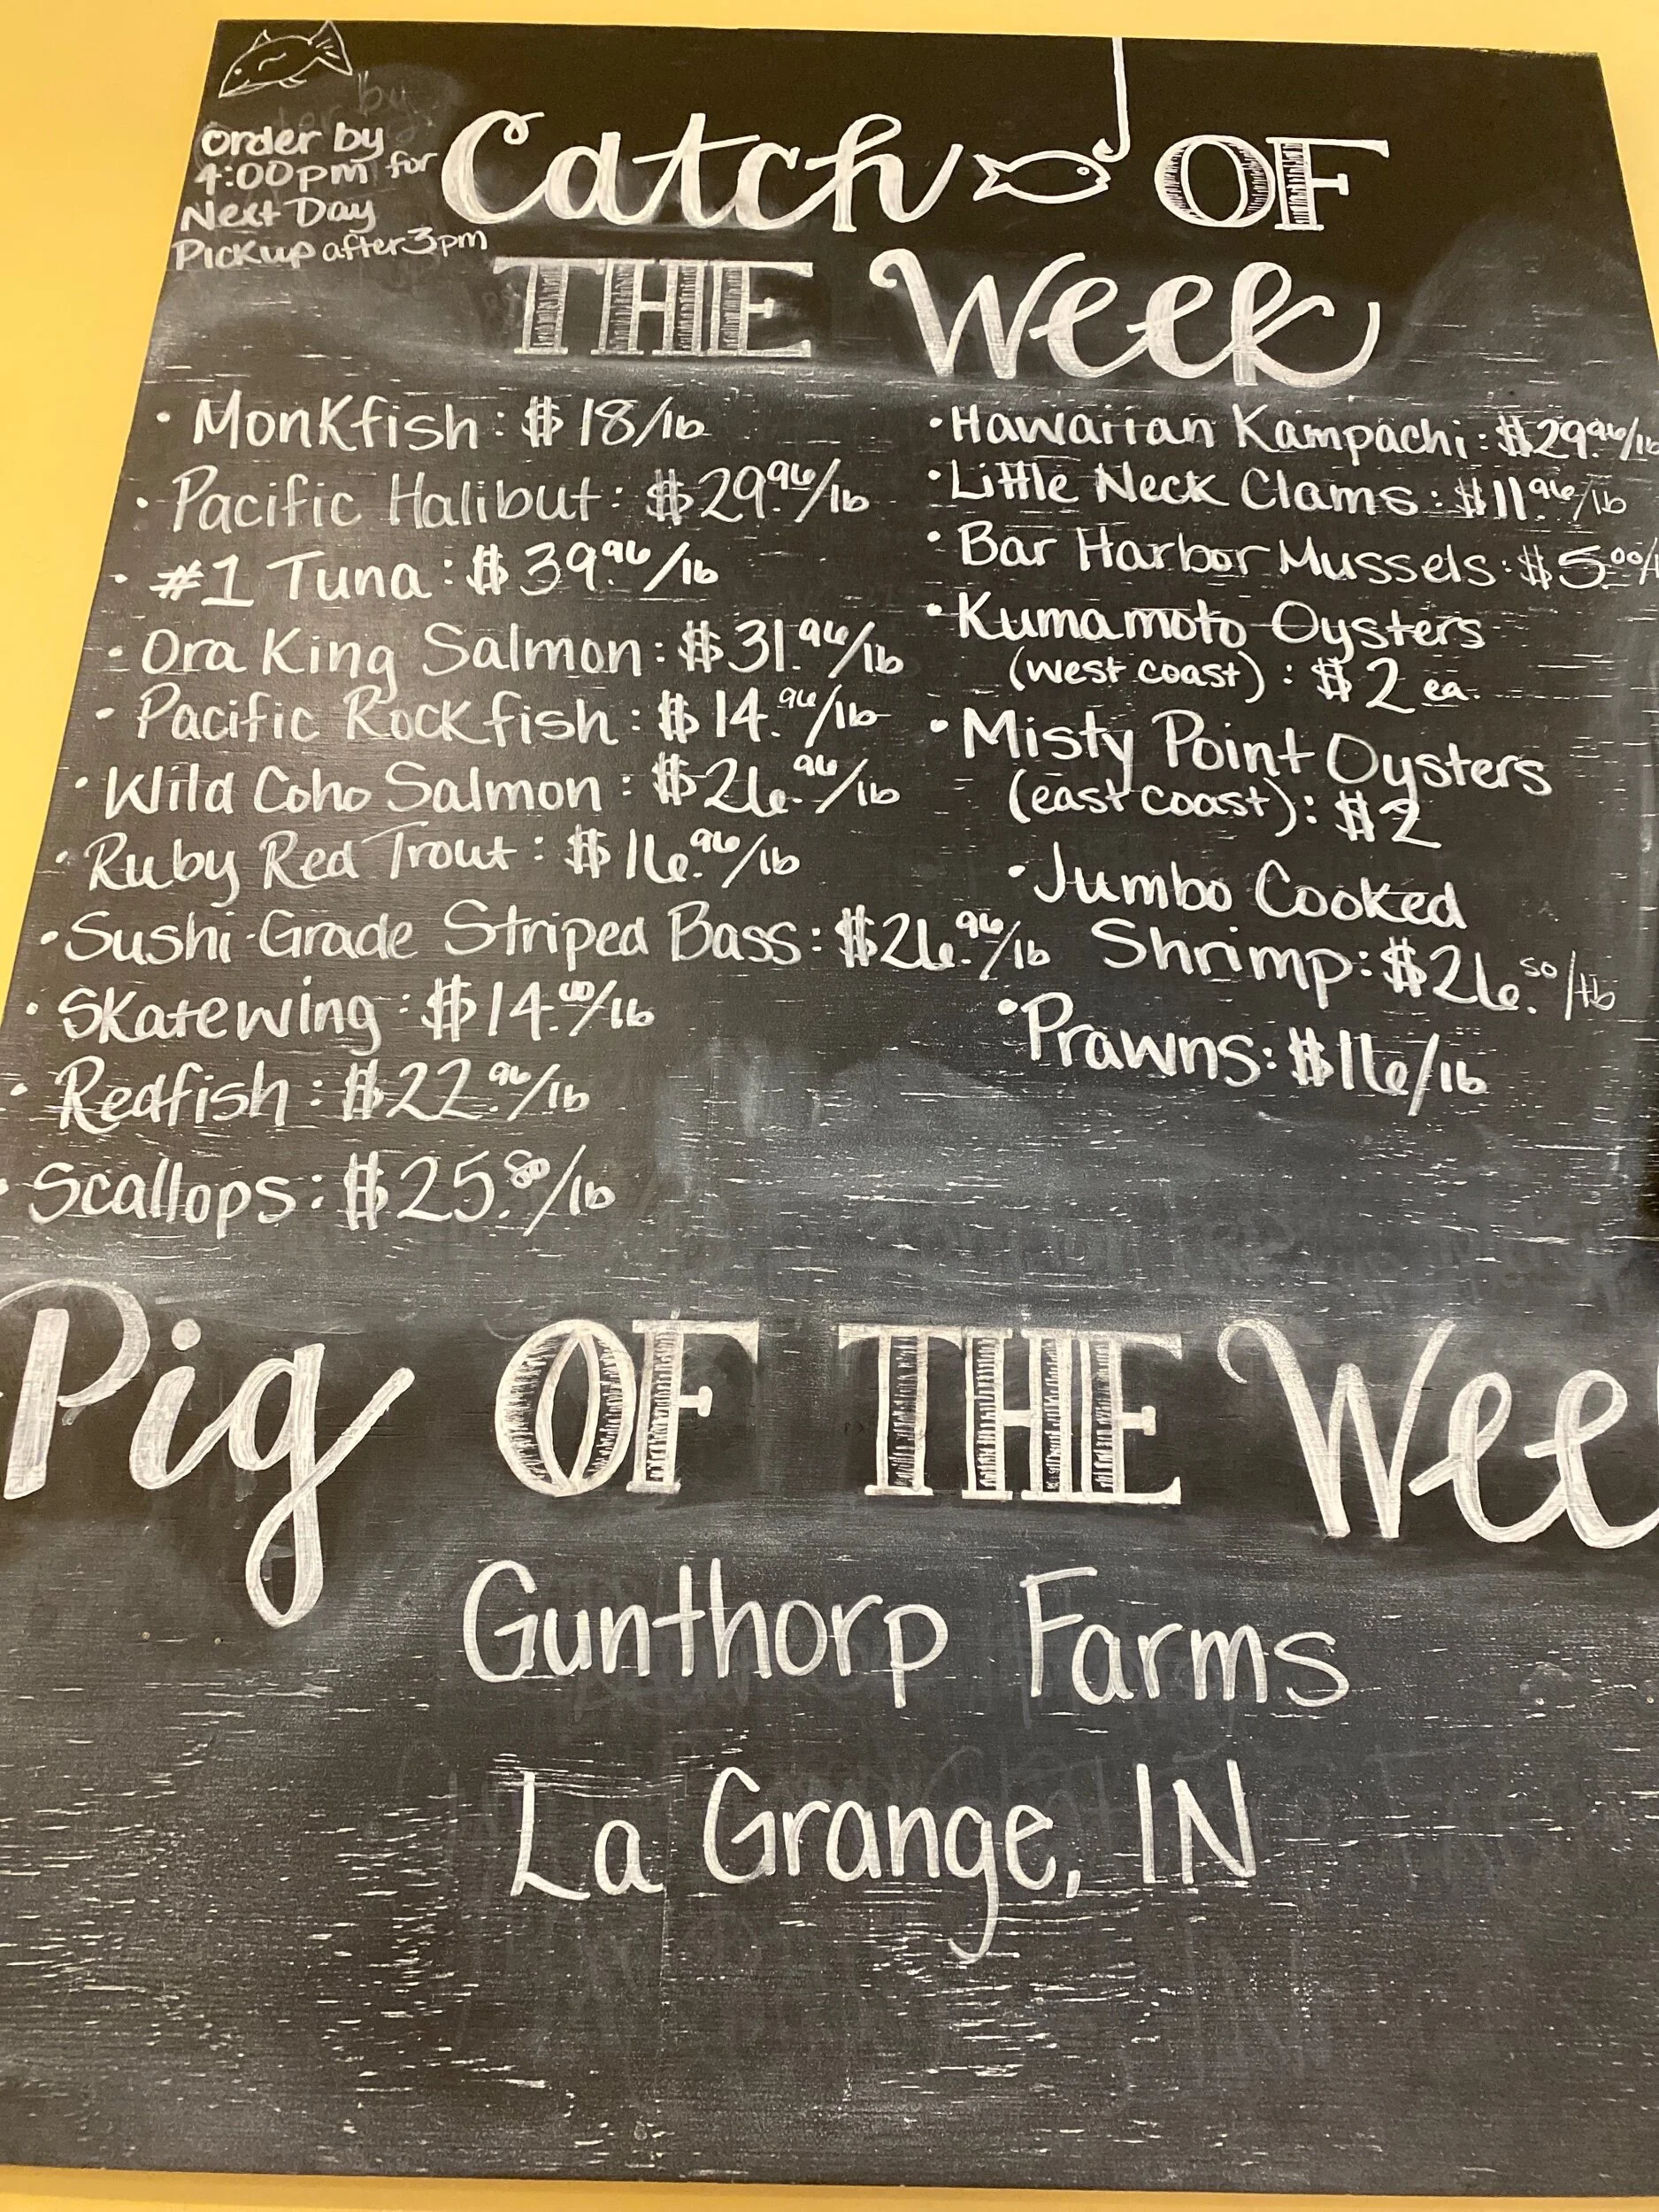 Order by
4:00pm for
Next Day
Pickup after 3pm
Catch OF
THE Week
• Monkfish: $18/lb
• Pacific Halibut: $29.96/lb
• #1 Tuna: $39.96/lb
• Ora King Salmon: $31.96/lb
• Pacific Rockfish: $14.96/lb
• Wild Coho Salmon: $26.96/lb
• Ruby Red Trout: $16.96/lb
• Sushi-Grade Striped Bass: $26.96/lb
• Skatewing: $14.00/lb
• Redfish: $22.96/lb
• Scallops: $25.80/lb
• Hawaiian Kampachi: $29.96/lb
• Little Neck Clams: $11.96/lb
• Bar Harbor Mussels: $5.00/
• Kumamoto Oysters
(west coast): $2 ea.
• Misty Point Oysters
(east coast): $2
• Jumbo Cooked
Shrimp: $26.50/lb
• Prawns: $16/lb
Pig OF THE Wee
Gunthorp Farms
La Grange, IN